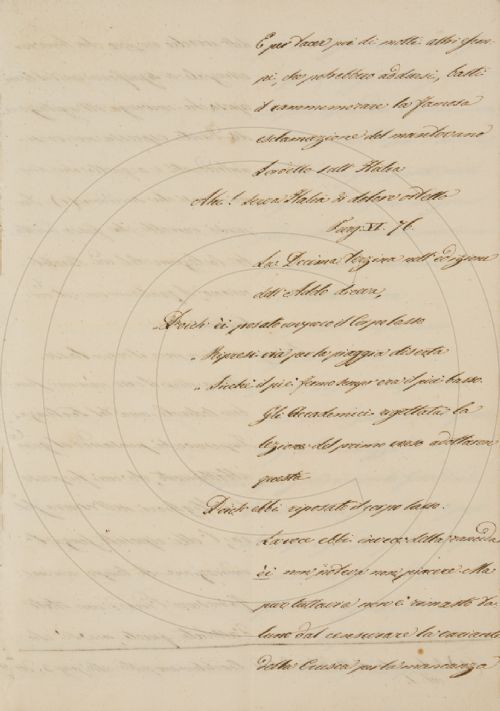 E per tacer poi di molti altri esem-
pi, che potrebbero addursi, basti
il rammemorare la famosa
esclamazione del mantovano
Sordello sull'Italia
Ahi! serva Italia di dolore ostello
Purg. VI. 76.
La Decima terzina nell'edizione
dell'Aldo
Poich'ei posato un poco il Corpo lasso
Ripresi via per la piaggia diserta
Sicchè il piè fermo sempr'era il più basso.
Gli Accademici rigettata la
lezione del primo verso adottarono
questa
Poich'ebbi riposato il corpo lasso.
La voce ebbi invece della rancida
ei non poteva non piacere. Ma
pur tuttavia non è rimasto ta-
luno dal censurare la
della Crusca per la mancanza